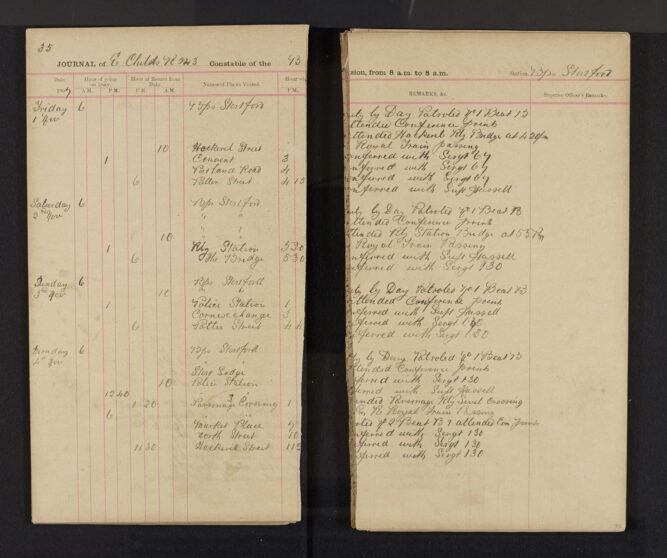 35
JOURNAL of E Childs Constable of the
Date. Hour of going on Duty. Hour of Return from Duty. Names of Places Visited.
A.M. P.M. A.M. P.M. P.M.
Friday 6 Bps Stortford
1 Nov
10 Hockerel Street
1 Convent 3
Portland Road 4
6 Potter Street 4 15
Saturday 6 Bps Stortford
2nd Nov " "
" "
10
1 Rly Station 5 30
6 The Bridge 5 30
Sunday 6 Bps Stortford
3rd Nov 10 " "
1 Police Station 1
Corn exchange 3
6 Potter Street 4 4
Monday 6 Bps Stortford
4th Nov " "
Stort Lodge
10 Police Station
12 40
1 20 Parsonage Crossing 1
6
Market Place
North Street 10
11 30 Hockerel Street
sion, from 8 a.m. to 8 a.m. Station, Bps Stortford
REMARKS, &c. Superior Officer's Remarks.
uty by Day Patroled No 1 Beat B
ttended Conference point
ttended Hockerel Rly Bridge at 4 20 pm
Royal Train passing
onferred with Sergt 64
onferred with Sergt 64
onferred with Sergt 64
onferred with Supt Hassell
uty by Day Patroled No 1 Beat B
ttended Conference point
ttended Rly Station Bridge at
Royal Train Passing
nferred with Supt Hassell
nferred with Sergt 130
uty by Day Patroled No 1 Beat B
ttended Conference point
nferred with Supt Hassell
nferred with Sergt 130
nferred with Sergt 130
ty by Day Patroled No 1 Beat B
ttended Conference point
ferred with Sergt 130
ferred with Supt Hassell
ended Parsonage Rly Crossing
Royal Train Passing
2 Beat B & attended Con points
nferred with Sergt 130
nferred with Sergt 130
ferred with Sergt 130